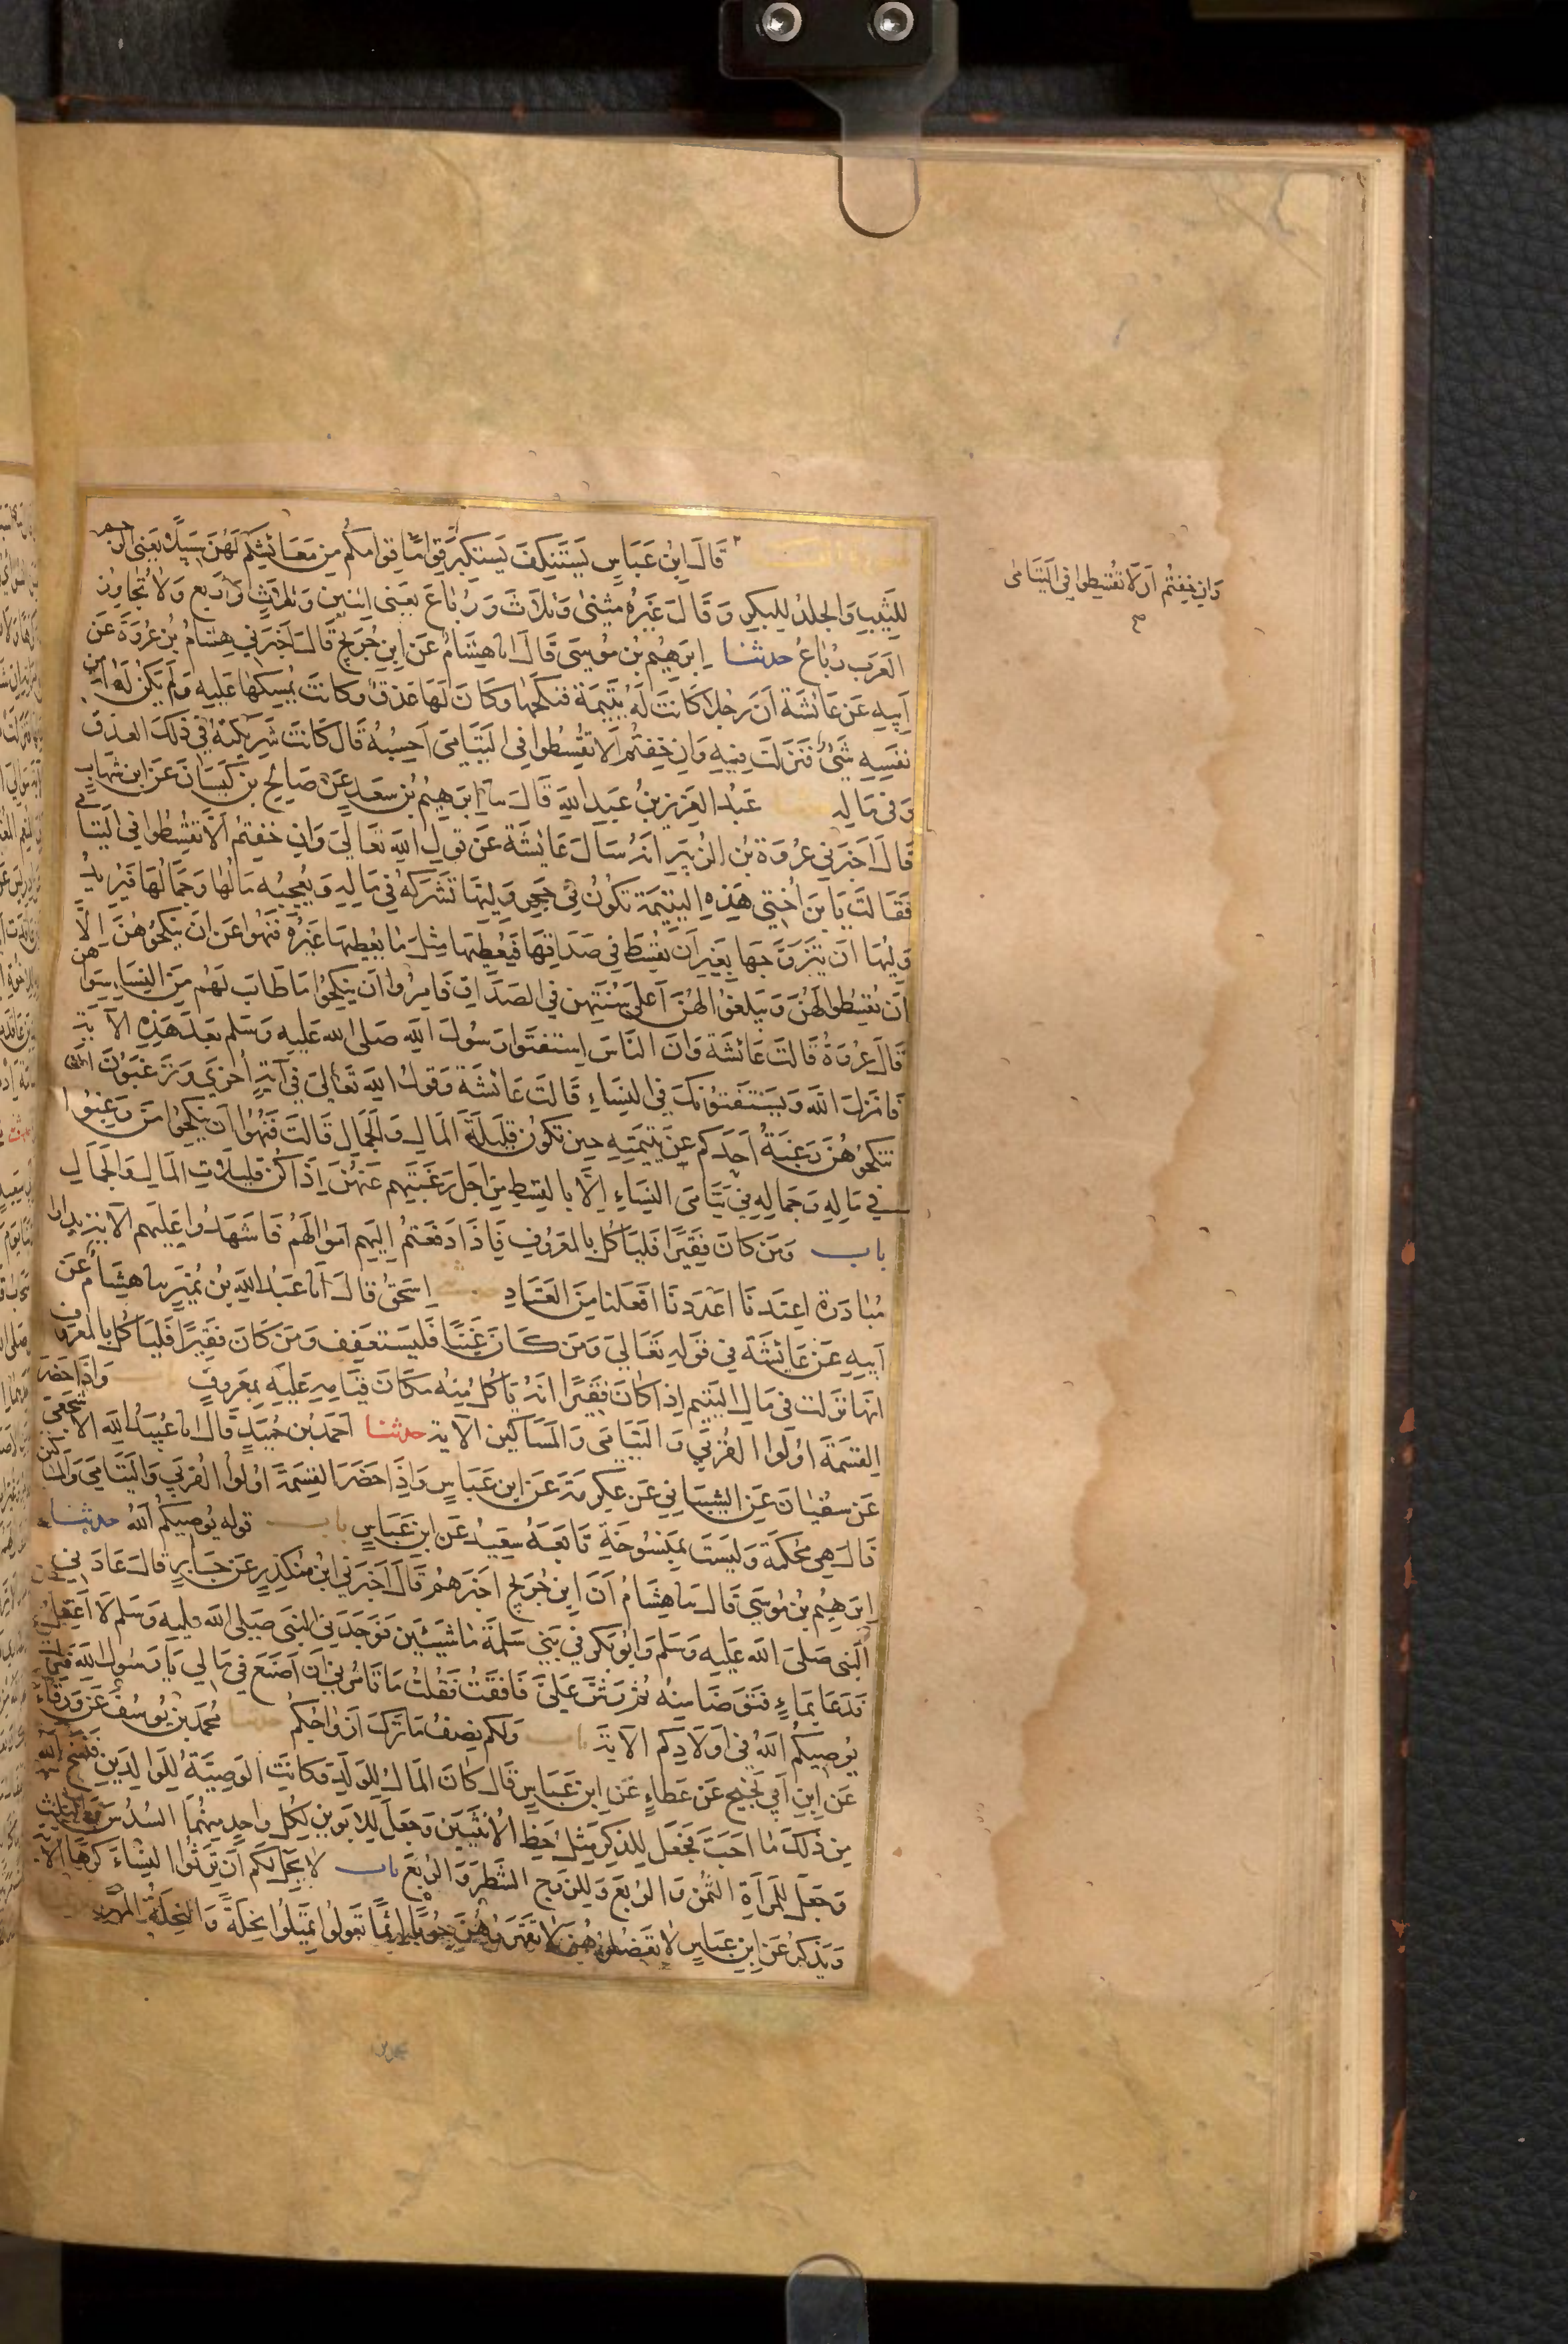 قَالَ ابْنُ عَبَاسٍ يَسْتَنْكِفَ يَسْتَكْبِرُ قِوَامًا قِوَامُكُم مِن مَعَائِشِكُم لَهُنَّ سَبِيلًا يَعْنِى الرجم
لِلثَّيِّبِ وَالجَلْدَ لِلبِكْرِ وَقَالَ غَيْرُهُ مَثْنَى وَثُلَاثَ وَرُبَاعَ يَعْنِى اثنين وَثَلَاثٍ وَأَرْبَعٍ وَلَا تُجَاوِزُ
العَرَب رُبَاعَ حدثنا ابرَهِيم بن مُوسَى قَالَ انا هِشَامٌ عَنِ ابنِ جُرَيْجٍ قَالَ اَخبَرَنِي هِشَامُ بْنُ عُرْوَةَ عَن
اَبِيهِ عَن عَائشَةَ اَنَّ رَجُلًا كَانَت لَهُ يَتِيمَة فَنَكَحَهَا وَكَانَ لَهَا عَذقٌ وَكَانَت يُمْسِكُهَا عَلَيهِ وَلَم يَكُن لَهَا مِن
نَفسِهِ شَيْءٌ فَنَزَلَت فِيهِ وَاِن خِفتُم اَلَّا تُقْسِطُوا فِى اليَتَامَى اَحسِبُهُ قَالَ كَانَت شَرِيكَتَهُ فِي ذَلِكَ العذق
وَفى مَالِهِ عَبْدُ العَزِيزِ بنُ عَبدِ اللهِ قَالَ نا اِبرَهِيْمُ بْن سَعدٍ عَن صَالِحِ بن كَيسَانَ عَنِ ابنِ شِهَابٍ
قَالَ اَخبَرَنِي عُرْوَةُ بْن الزُّبَيرِ انه سَأَلَ عَائِشَةَ عَن قَولِ اللهِ تَعَالَى وَاِن خِفتُم اَلَّا تُقْسِطُوا فِي اليَتَامَى
فَقَالَت يَا بنَ اُختِي هَذِهِ اليَتِيمَة تَكُونُ فِي حَجرِ وَلِيِّهَا تَشرَكُهُ فِي مَالِهِ وَيُعجِبُه مَالُهَا وَجَمَالُهَا فَيُرِيدُ
وَلِيُّهَا اَن يَتَزَوَّجَهَا بِغَيرِ اَن يُقْسِطَ فِي صَدَاقِهَا فَيُعْطِيَهَا مِثْلَ مَا يُعْطِيهَا غَيْرُهُ فَنُهُوا عَن اَن يَنكِحُوهُنَّ اِلَّا
اَن يُقْسِطُوا لَهُنَّ وَيَبلُغُوا لَهُنَّ اَعلَى سُنَّتِهِنَّ فِي الصَّدَاقِ فَامِرُوا اَن يَنكِحُوا مَا طَابَ لَهُم مِنَ النِّسَاءِ سِوَاهُنَّ
قَالَ عُرْوَةُ قَالَت عَائشَة وَاَنَّ النَّاسَ استَفتَوا رَسُولَ اللهِ صَلى الله عَلَيهِ وَسَلم بَعدَ هَذِهِ الآيَةِ
فَاَنزَلَ الله وَيَسْتَفتُونَكَ فِي النِّسَاءِ قَالَت عَائشَة وَقَولُ اللهِ تَعَالَى فِي آيَةٍ اُخرَى وَتَرغَبُونَ اَن
تَنكِحُوهُنَّ رَغبَةُ اَحَدِكم عَن يَتِيمَتِهِ حِينَ تَكُونُ قَلِيلَةَ المَالِ وَالجَمَالِ قَالَت فَنُهُوا اَن يَنكِحُوا مَن رَغِبُوا
فِي مَالِهِ وَجَمَالِهِ فِي يَتَامَى النِّسَاءِ اِلَّا بِالقِسطِ مِن اَجلِ رَغبَتِهِم عَنهُنَّ اِذَا كُنَّ قَلِيلَاتِ المَالِ وَالجَمَالِ
باب وَمَن كَانَ فَقِيرًا فَليَأكُل بِالمَعرُوفِ فَاِذَا دَفَعتُم اِلَيهِم اَموَالَهُم فَاَشهِدُوا عَلَيهِم الآية بدارا
مُبَادَرَةً اعتَدنَا اَعدَدنَا افعَلنَا مِنَ العَتَادِ اِسحَق قَالَ انا عَبْدُ اللهِ بْن نُمَيرٍ نا هِشَام عَن
اَبِيهِ عَن عَائِشَة فِي قَولِهِ تَعَالَى وَمَن كَانَ غَنِيًّا فَليَستَعفِف وَمَن كَانَ فَقِيرًا فَليَأكُل بِالمَعرُوف
انهَا نَزَلَت فِي مَالِ اليَتِيم اِذَا كَانَ فَقِيرًا اَنَّهُ يَأكُلُ مِنهُ مَكَانَ قِيَامِهِ عَلَيهِ بِمَعرُوفٍ وَاِذَا حَضَرَ
القِسمَةَ اُولُوا القُربَى وَاليَتَامَى وَالمَسَاكِين الآية حدثنا اَحمَدُ بْن حُمَيدٍ قَالَ انا عُبَيْدُ اللهِ الاشجعى
عَن سُفيَانَ عَنِ الشَّيبَانِي عَن عِكرِمَةَ عَنِ ابنِ عَبَاسٍ وَاِذَا حَضَرَ القِسمَةَ اُولُوا القُربَى وَاليَتَامَى وَالمَسَاكين
قَالَ هِيَ مُحكَمَة وَلَيسَت بِمَنسُوخَةٍ تَابَعَهُ سَعِيدٌ عَنِ ابنِ عَبَاسٍ باب قوله يُوصِيكُمُ اللهُ حدثنا
اِبرَهِيْمُ بْن مُوسَى قَالَ نا هِشَامٌ اَنَّ ابنَ جُرَيجٍ اَخبَرَهُم قَالَ اَخبَرَنِي ابْنُ مُنكَدِرٍ عَن جَابِرٍ قَالَ عَادَنِي
النَّبِى صَلى الله عَلَيهِ وَسَلم وَابُو بَكرٍ فِي بَنِي سَلِمَةَ مَاشِيَينِ فَوَجَدَنِي النَّبِى صَلى الله عليه وَسَلم لَا اَعقِلُ
فَدَعَا بِمَاءٍ فَتَوَضَّا مِنهُ ثُمَّ رَشَّ عَلَيَّ فَاَفَقتُ فَقُلتُ مَا تَأمُرُنِي اَن اَصنَعَ فِي مَالِي يَا رَسُولَ اللهِ فَنَزَلَت
يُوصِيكُمُ اللهُ فِي اَولَادِكُم الآية باب وَلَكُم نِصفُ مَا تَرَكَ اَزوَاجُكُم مُحَمَّدُ بن يُوسُفَ عَن وَرقَاءَ
عَنِ ابنِ اَبِي نَجِيحٍ عَن عَطَاءٍ عَنِ ابنِ عَبَاسٍ قَالَ كَانَ المَالُ لِلوَلَدِ وَكَانَتِ الوَصِيَّةُ لِلوَالِدَينِ فَنَسَخَ الله
مِن ذَلِكَ مَا اَحَبَّ فَجَعَلَ لِلذَّكَرِ مِثلَ حَظِّ الاُنثَيَينِ وَجَعَلَ لِلاَبَوَينِ لِكُلِّ وَاحِدٍ مِنهُمَا السُّدُسَ وَالثلث
وَجَعَلَ لِلمَرأَةِ الثُّمُنَ وَالرُّبعَ وَلِلزَّوجِ الشَّطرَ وَالرُّبعَ باب لَا يَحِلُّ لَكُم اَن تَرِثُوا النِّسَاءَ كَرهًا الآية
وَيُذكَرُ عَنِ ابنِ عَبَاسٍ لَا تَعضُلُوهُنَّ لَا تَقهَرُوهُنَّ حُوبًا اِثمًا تَعُولُوا تَمِيلُوا نِحلَةً وَالنِّحلَةُ المَهر
وَاِن خِفتُم اَن لَا تُقْسِطُوا فِي اليَتَامَى